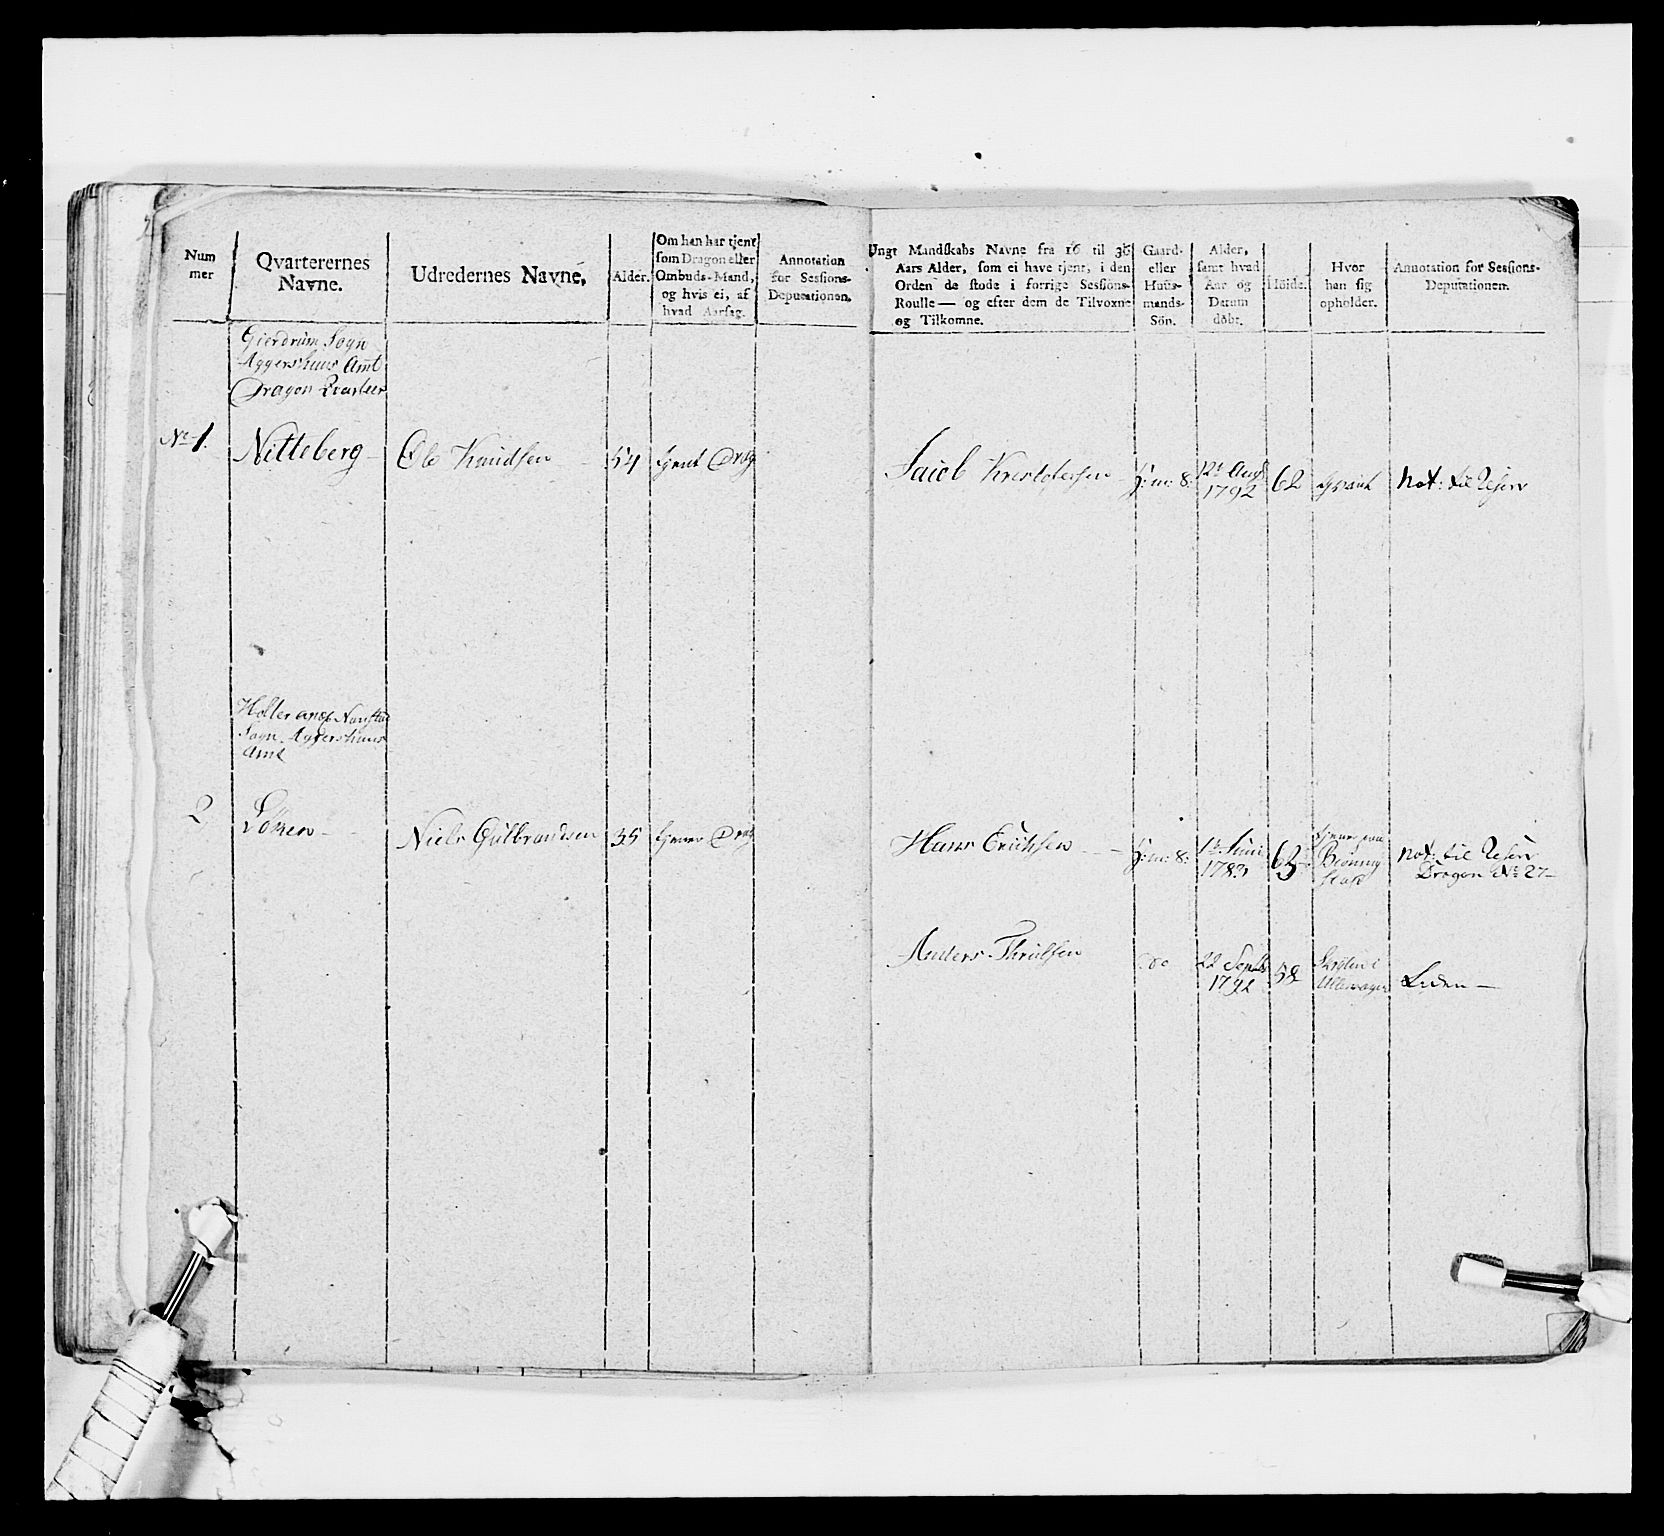 Nummer
Qvarterernes Navne.
Udredernes Navne.
Alder.
Om han har tjent
som Dragon eller
Ombuds-Mand,
og hvis ei, af
hvad Aarsag.
Annotation
for Sessions-
Deputationen.
Ungt Mandskabs Navne fra 16 til 36
Aars Alder, som ei have tjent, i den
Orden de stode i forrige Sessions-
Roulle — og efter dem de Tilvoxne
og Tilkomne.
Gaard-
eller
Huus-
mands-
Sön.
Alder,
samt hvad
Aar og
Datum
döbt.
Höide.
Hvor
han sig
opholder.
Annotation for Sessions-
Deputationen.
Gierdrum Sogn
Aggershuus Amt
Dragon Qvarteer
No 1. Nitteberg Ole Knudsen 54 tjent Drag
Jacob Kristofersen H: m: S: 12t Aug 1792 62 not: til Reserv
Holter og Nanstad
Sogn Aggershuus
Amt
2 Löken Niels Gulbrandsen 35 tjener Drag
Hans Erichsen H: m: S: 1t Juni 1783 63 tjener paa not: til Reserv
Dragon No 27
Anders Thrulsen do 22 Septb 1792 58 i Ullensager Liden